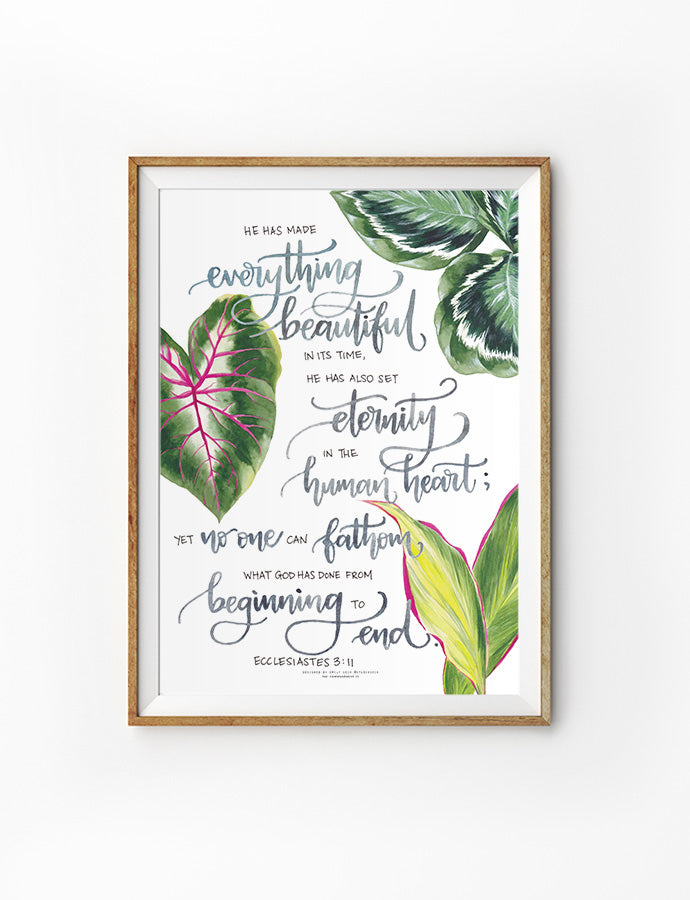 HE HAS MADE
everything
beautiful
IN ITS TIME,
HE HAS ALSO SET
eternity
IN THE
human heart;
YET no one CAN fathom
WHAT GOD HAS DONE FROM
beginning TO
end.
ECCLESIASTES 3:11